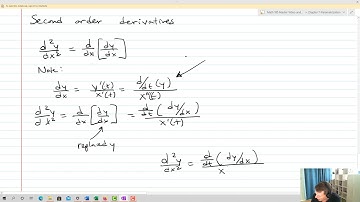 Second order derivatives
d²y/dx² = d/dx [dy/dx]
Note:
dy/dx = y'(t)/x'(t) = d/dt (y)/x'(t)
d²y/dx² = d/dx [dy/dx] = d/dt (dy/dx)/x'(t)
replaced y
d²y/dx² = d/dt (dy/dx)/x